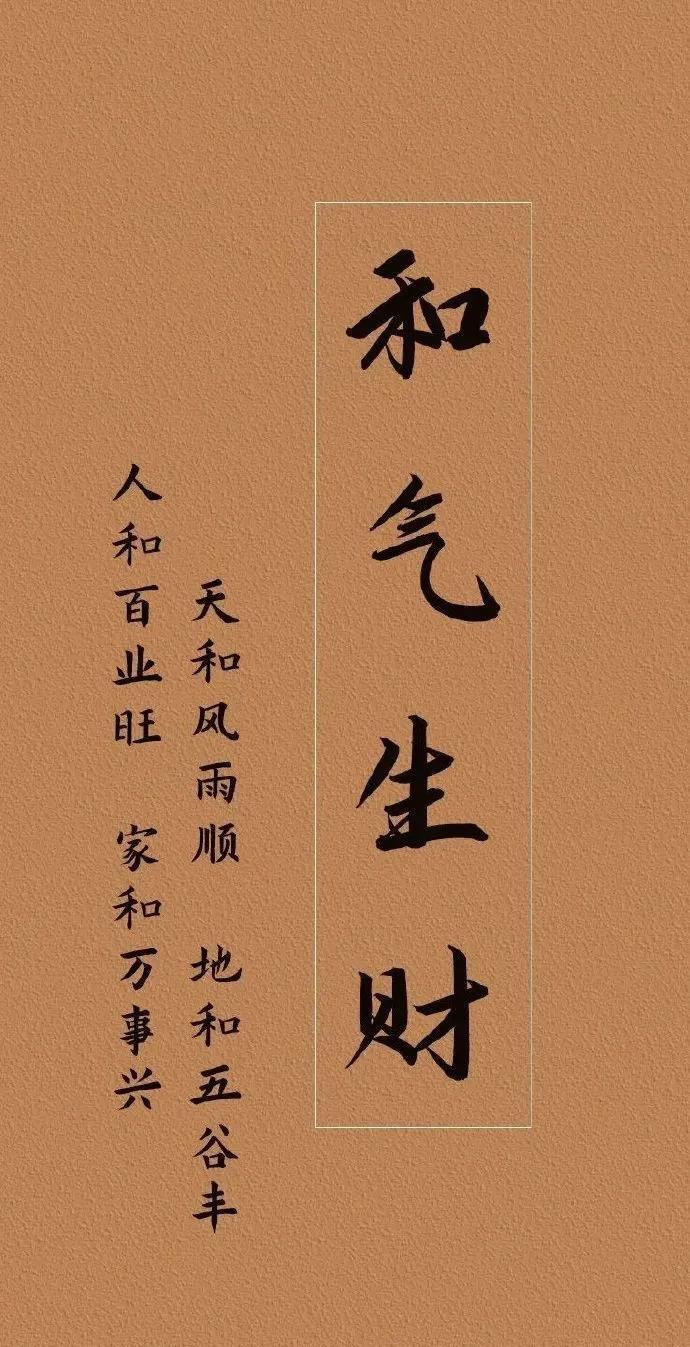 和气生财
天和风雨顺 地和五谷丰
人和百业旺 家和万事兴